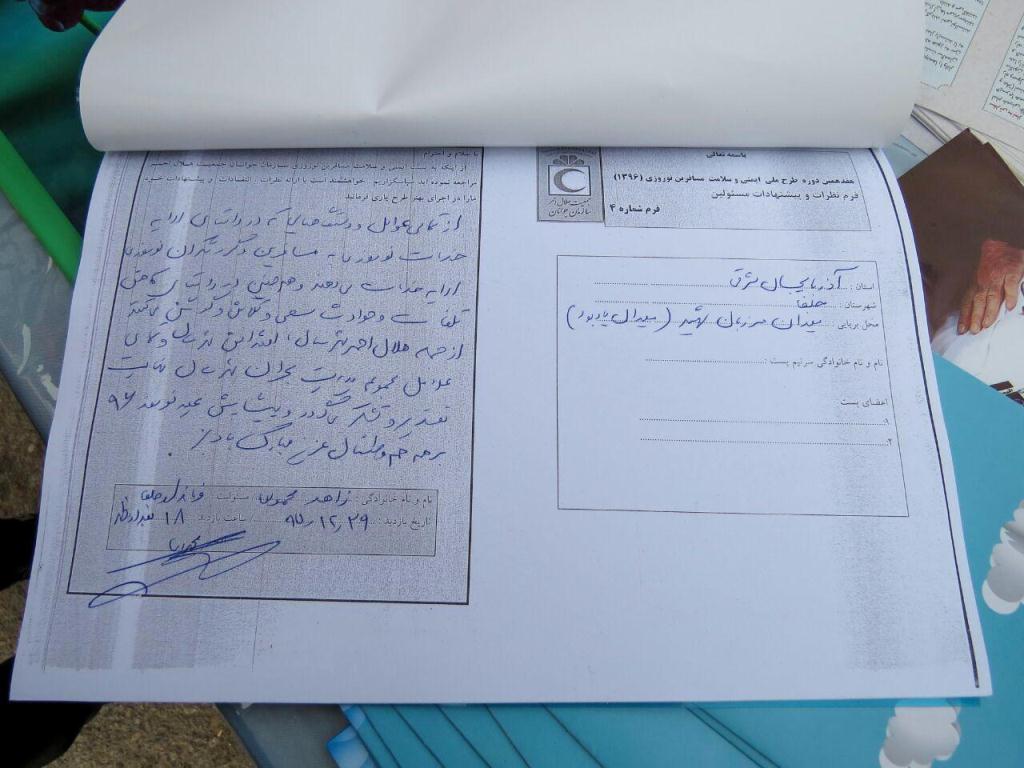 باسمه تعالی
هفدهمین دوره طرح ملی ایمنی و سلامت مسافرین نوروزی (۱۳۹۶)
فرم نظرات و پیشنهادات مسئولین
فرم شماره ۴
جمعیت هلال احمر
سازمان جوانان
استان : آذربایجان شرقی
شهرستان : جلفا
محل برپایی : میدان مرزبان شهید (میدان یادبود)
نام و نام خانوادگی سرتیم پست :
اعضای پست
۱.
۲.
با سلام و احترام
از اینکه به پست ایمنی و سلامت مسافرین نوروزی سازمان جوانان جمعیت هلال احمر
مراجعه نموده اید سپاسگزاریم. خواهشمند است با ارائه نظرات ، انتقادات و پیشنهادات خود
ما را در اجرای بهتر طرح یاری فرمائید
از تمامی عوامل و دستگاههای که در راستای ارایه
خدمات نوروزی به مسافرین و گردشگران نوروزی
ارایه خدمات می‌دهند و همچنین در راستای کاهش
تلفات و حوادث سعی و تلاش و کوشش می‌کنند
از جمله هلال احمر شهرستان،
عوامل مجموعه مدیریت بحران شهرستان نهایت
تقدیر و تشکر می‌گردد و پیشاپیش عید نوروز ۹۶
بر همه هم وطنان عزیز مبارک باد
نام و نام خانوادگی : زاهد محمودی مسئولیت : فرماندار جلفا
تاریخ بازدید : ۹۵/۱۲/۲۹ ساعت بازدید : ۱۸ بعدازظهر